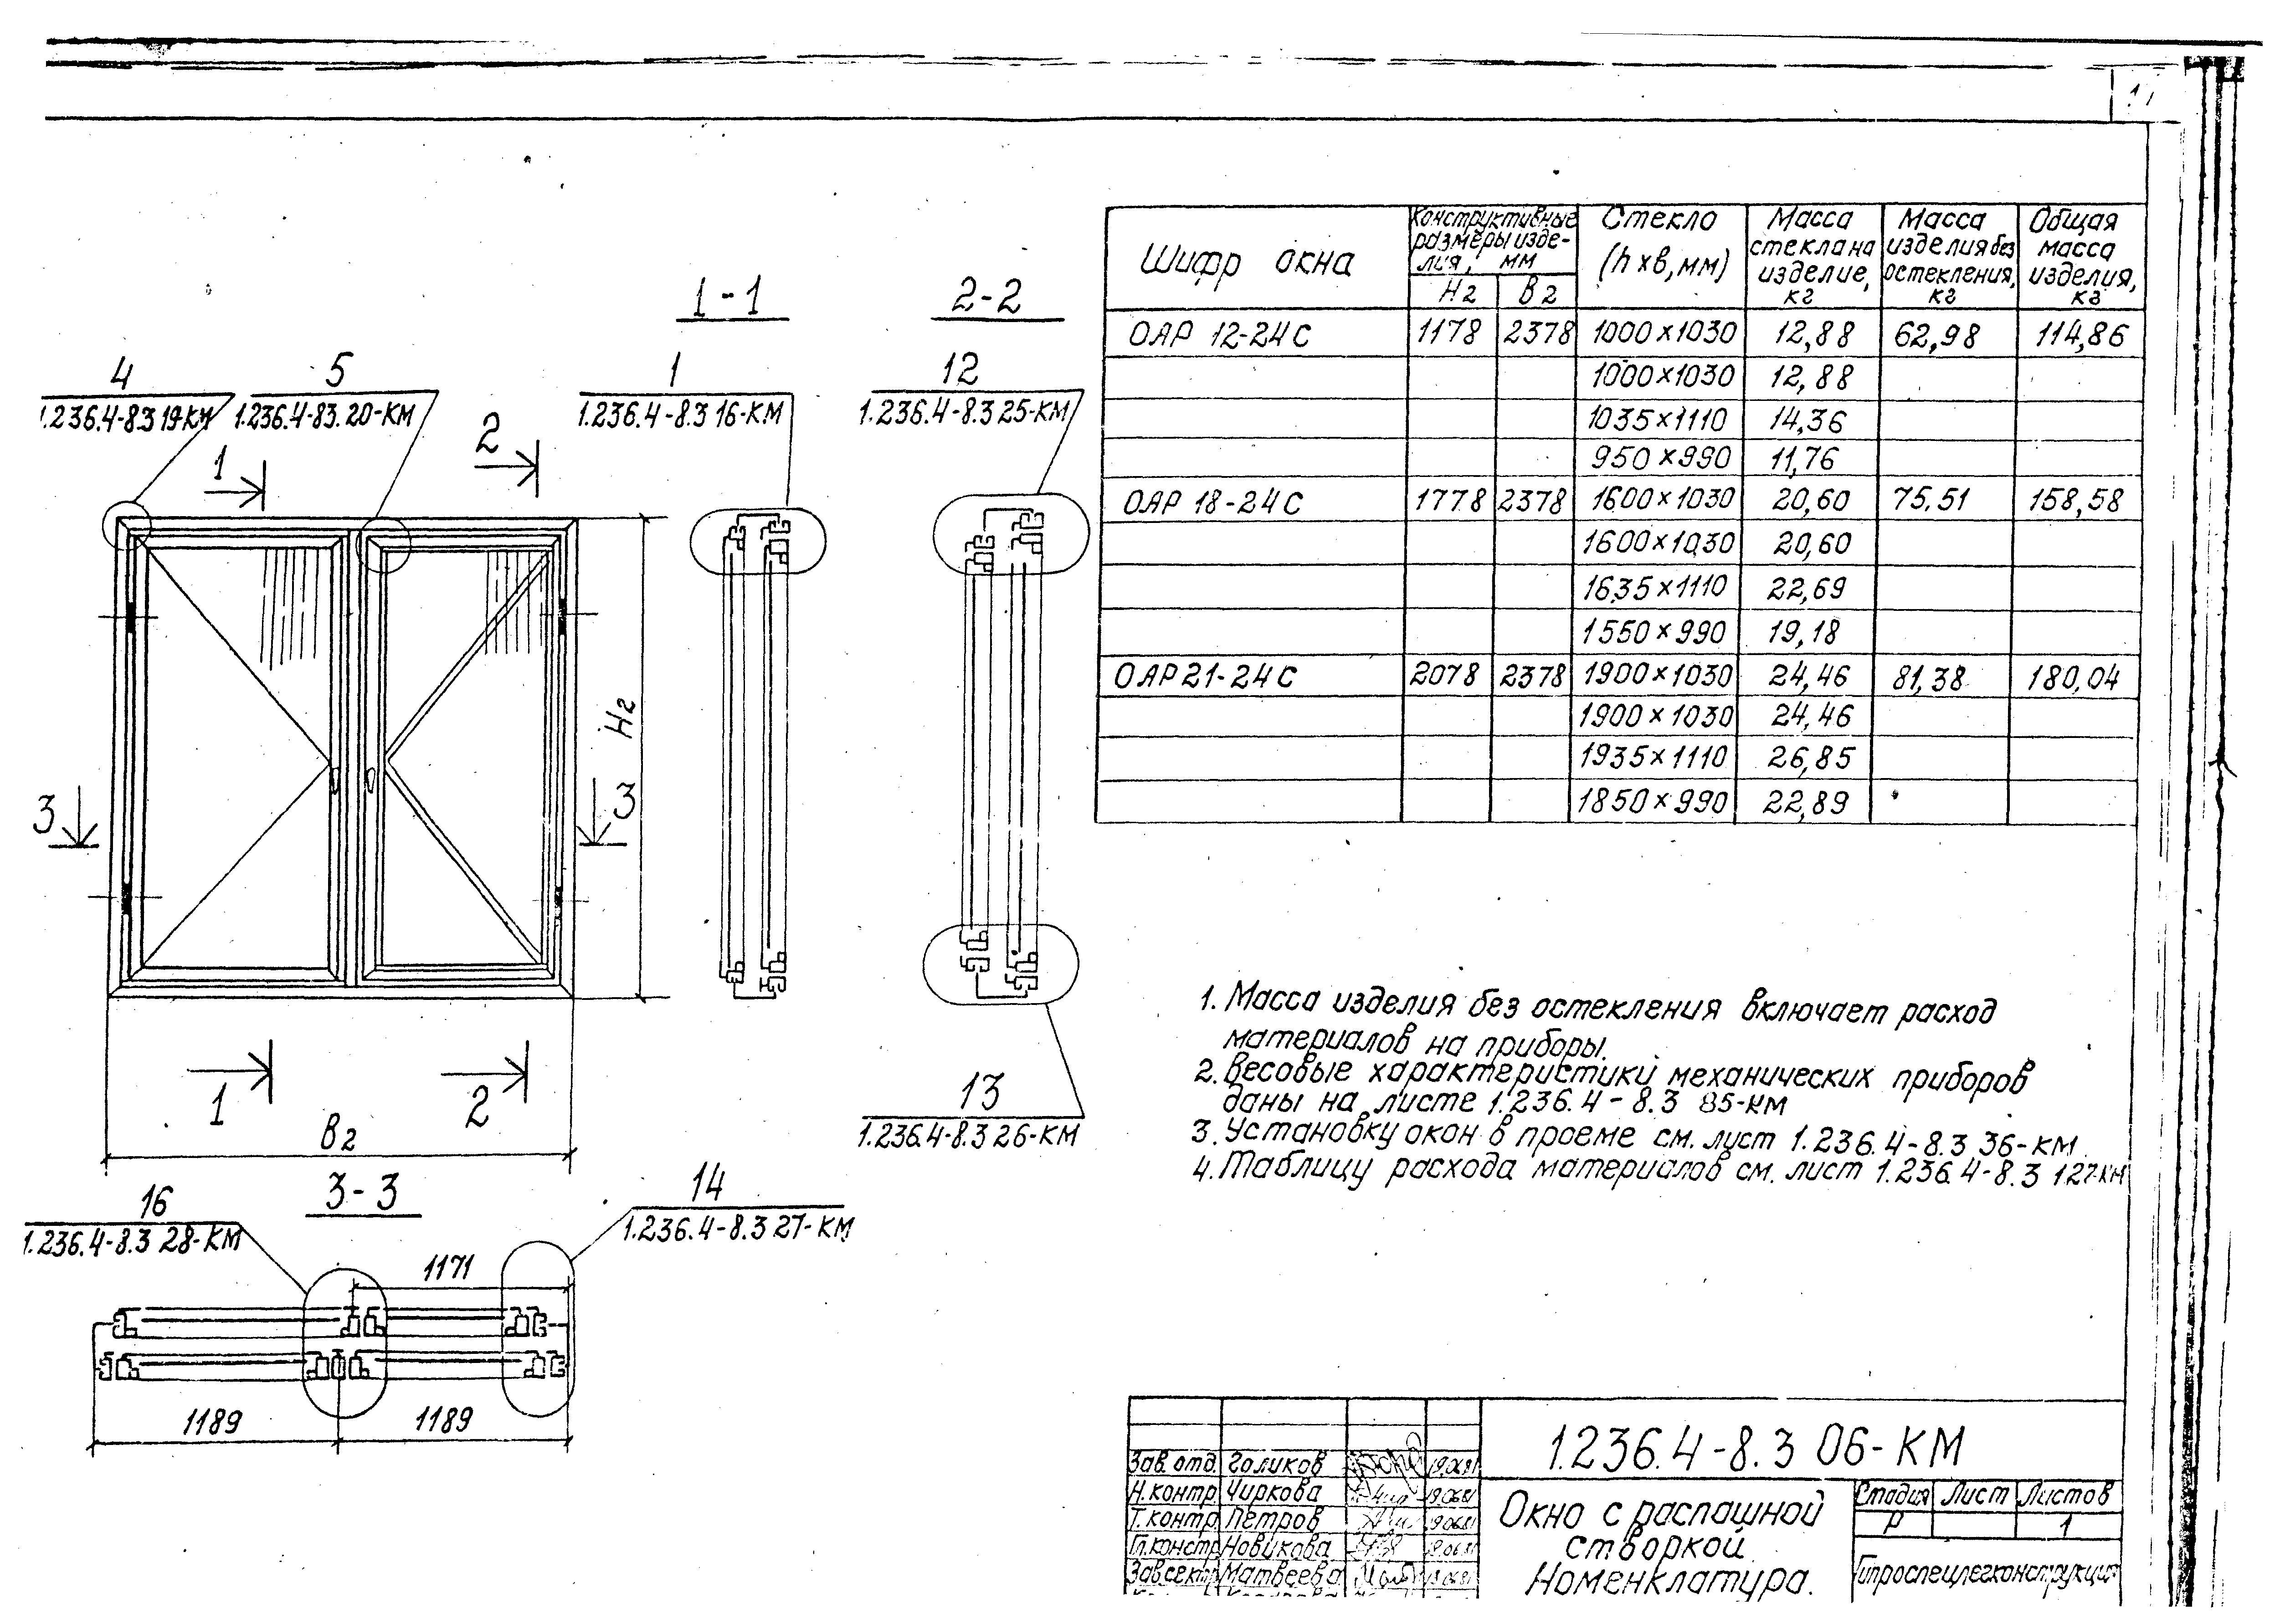 1-1
2-2
4
1.236.4-8.3 19-КМ
5
1.236.4-83.20-КМ
1
1.236.4-8.3 16-КМ
12
1.236.4-8.3 25-КМ
1
2
3
3
Н2
1
2
В2
13
1.236.4-8.3 26-КМ
3-3
16
1.236.4-8.3 28-КМ
14
1.236.4-8.3 27-КМ
1171
1189
1189
Шифр окна
Конструктивные размеры изде-лия, мм
Н2
В2
Стекло (h×в, мм)
Масса стекла на изделие, кг
Масса изделия без остекления, кг
Общая масса изделия, кг
ОАР 12-24С 1178 2378 1000×1030 12,88 62,98 114,86
1000×1030 12,88
1035×1110 14,36
950×990 11,76
ОАР 18-24С 1778 2378 1600×1030 20,60 75,51 158,58
1600×1030 20,60
1635×1110 22,69
1550×990 19,18
ОАР 21-24С 2078 2378 1900×1030 24,46 81,38 180,04
1900×1030 24,46
1935×1110 26,85
1850×990 22,89
1. Масса изделия без остекления включает расход
материалов на приборы.
2. Весовые характеристики механических приборов
даны на листе 1.236.4-8.3 85-КМ
3. Установку окон в проеме см. лист 1.236.4-8.3 36-КМ
4. Таблицу расхода материалов см. лист 1.236.4-8.3 127-КМ
1.236.4-8.3 06-КМ
Зав. отд. Голиков 19.06.81
Н. контр. Чиркова 19.06.81
Т. контр. Петров 19.06.81
Гл. констр. Новикова 19.06.81
Зав сект. Матвеева 19.06.81
Окно с распашной
створкой.
Номенклатура.
Стадия Лист Листов
Р 1
Гипроспецлегконструкция